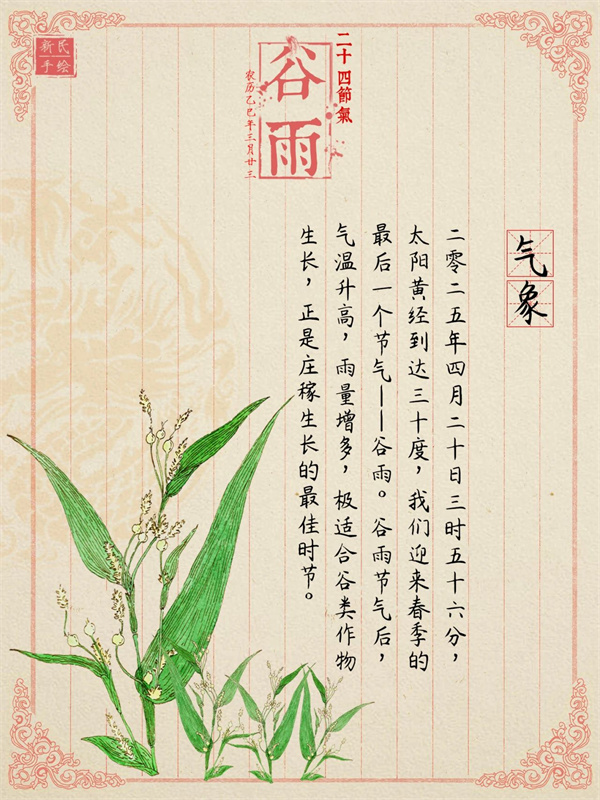 新民
手绘
二十四節氣
谷雨
农历乙巳年三月廿三
气象
二零二五年四月二十日三时五十六分，
太阳黄经到达三十度，我们迎来春季的
最后一个节气——谷雨。谷雨节气后，
气温升高，雨量增多，极适合谷类作物
生长，正是庄稼生长的最佳时节。